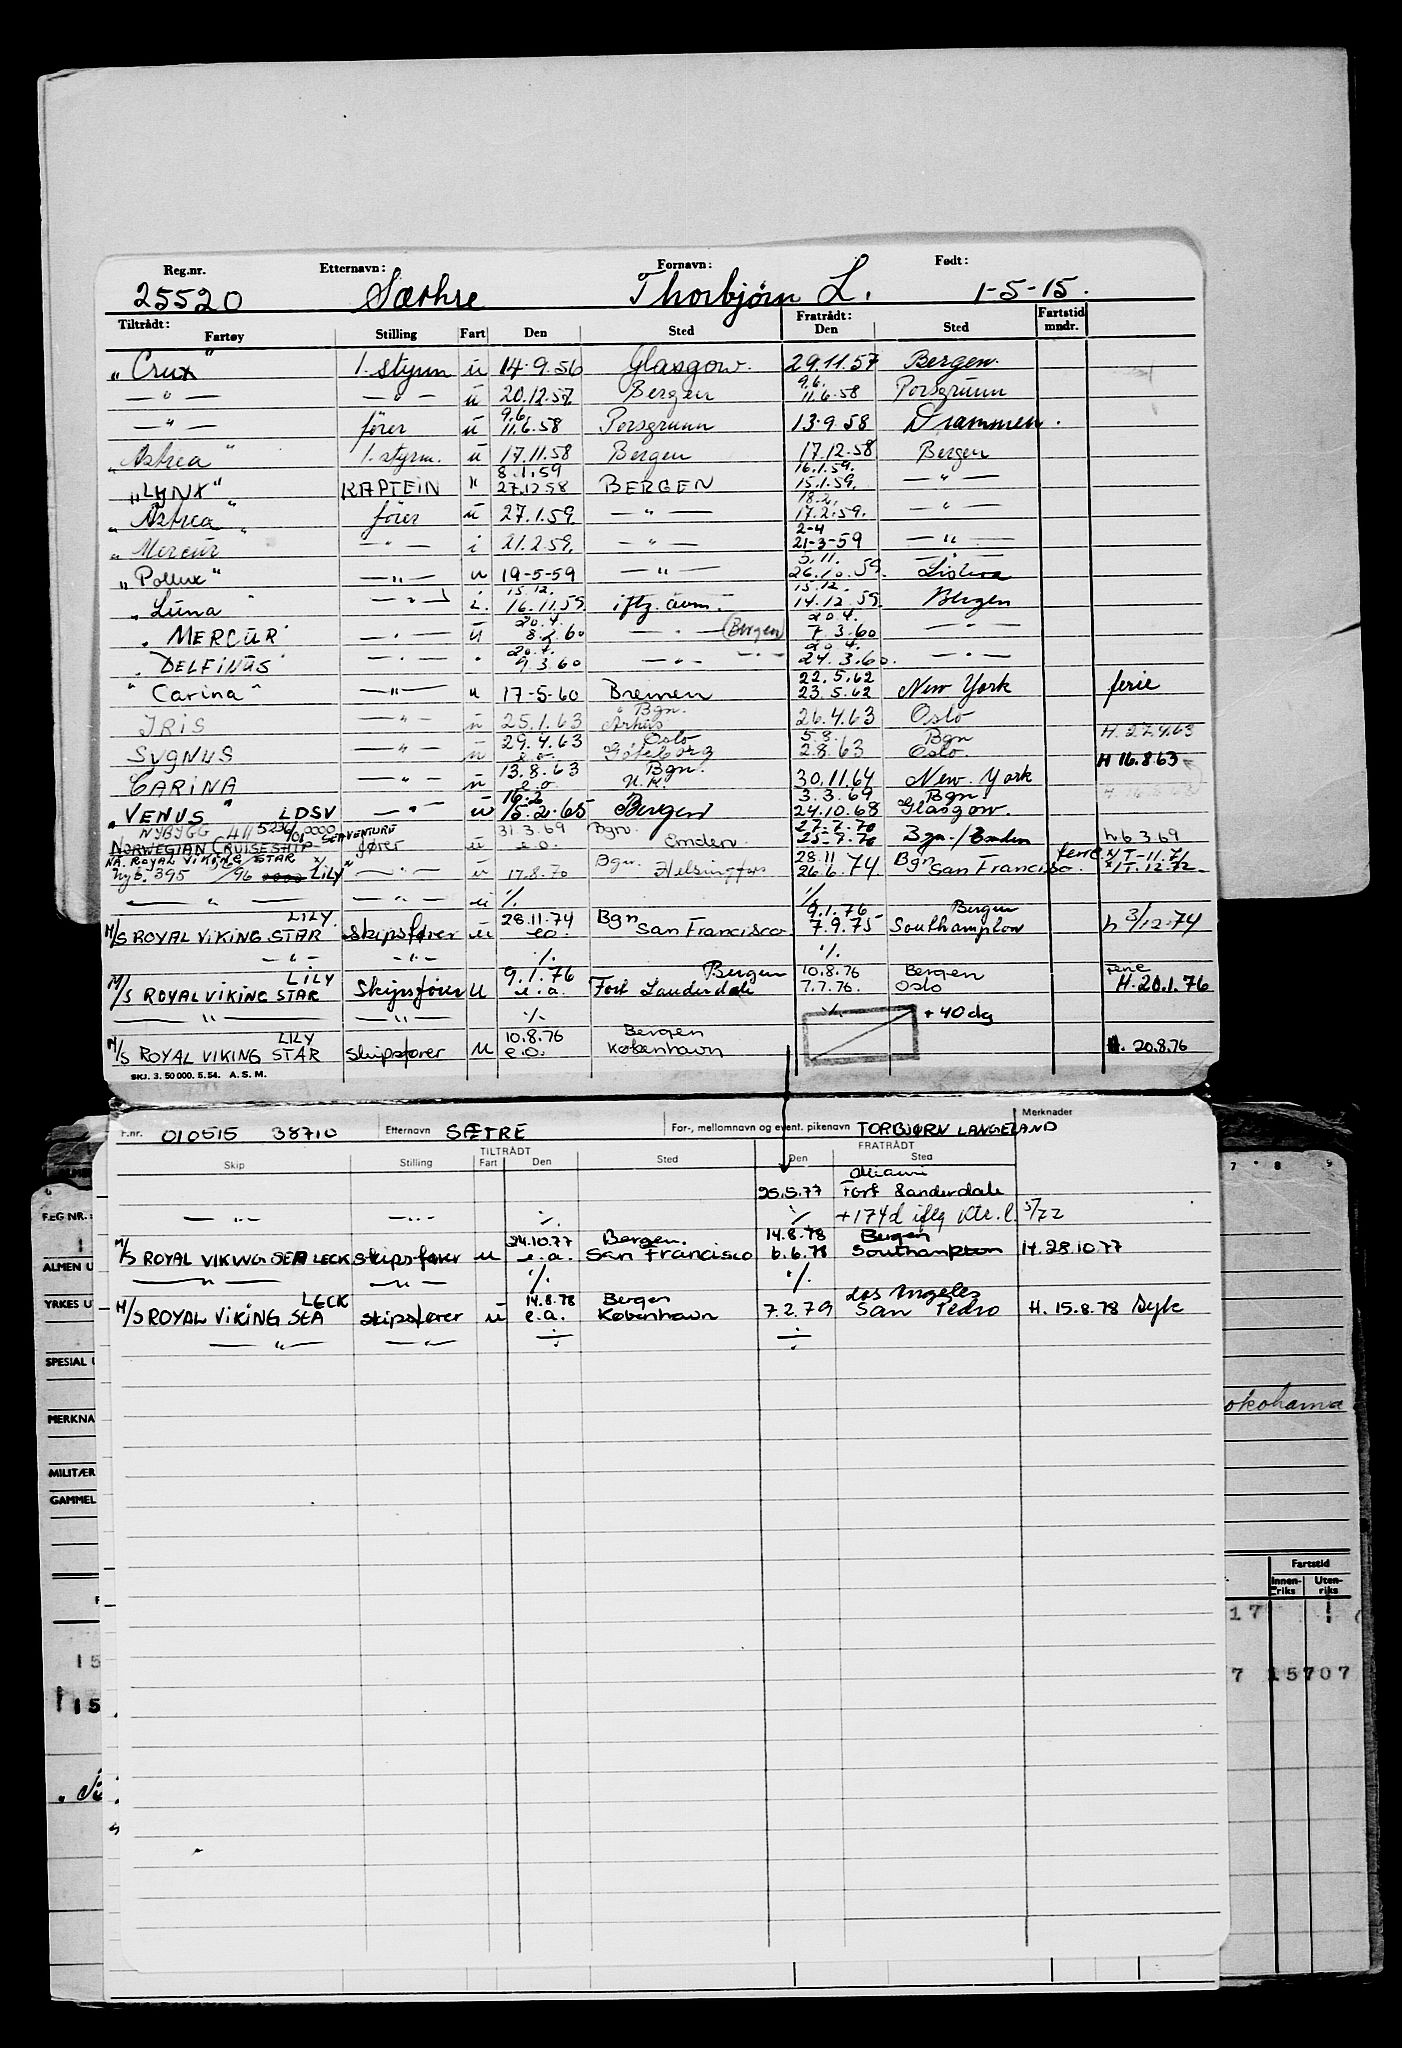 Reg.nr. Etternavn: Fornavn: Født:
25520 Sæthre Thorbjørn L. 1-5-15.
Tiltrådt: Fratrådt: Fartstid
Fartøy Stilling Fart Den Sted Den Sted mndr.
"Crux" 1. styrm u 14.9.56 Glasgow. 29.11.57 Bergen.
9.6.
— " — — " — u 20.12.57 Bergen 11.6.58 Porsgrunn
9.6.
— " — fører u 11.6.58 Porsgrunn 13.9.58 Drammen.
"Astrea" 1. styrm. u 17.11.58 Bergen 17.12.58 Bergen
8.1.59 16.1.59.
"LYNX" KAPTEIN " 27.12.58 BERGEN 15.1.59. — " —
18.2.
"Astrea" fører u 27.1.59. — " — 17.2.59. — " —
2-4
"Mercur" — " — i 21.2.59. — " — 21-3-59 — " —
5.11.
"Pollux" — " — u 19-5-59 — " — 26.10.59.
15.12. 15.12.
"Luna" — " — i. 16.11.59. iflg. avm. 14.12.59. Bergen
20.4. 20.4.
"MERCUR" — " — u 8.2.60 — " — (Bergen) 7.3.60 — " —
20.4. 20.4.
"DELFINUS" — " — " 9.3.60 — " — 24.3.60. — " —
22.5.62
"Carina" — " — u 17-5-60 Bremen 23.5.62 New York ferie
" Bgn.
IRIS — " — u 25.1.63 Århus 26.4.63 Oslo H. 27.4.63
29.4.63 Oslo 5.8. Bgn
SYGNUS — " — u e.o. Göteborg 2.8.63 Oslo. H 16.8.63
13.8.63 Bgn.
CARINA — " — u e.o N.Y. 30.11.64 New. York
16.2 3.3.69 Bgn.
"VENUS" LDSV — " — u 15.2.65 Bergen 24.10.68 Glasgow.
NYBYGG 411 5236/101 0000 SEAVENTURE 31 3.69 Bgn. 27.7.70
NORWEGIAN CRUISESHIP fører u e.o. Emden. 25.7.70 Bgn./Emden h 6 3.69
NÅ. ROYAL VIKING STAR x/ 28.11 Bgn ferie x/T-11.71
Nyb. 395 /96 0000 LILY" — " — u 17.8.70 Bgn. Helsingfors 26.6.74 San Francisco. x/T.12.72
— " — — " — u ./. ./.
LILY 28.11.74 Bgn 9.1.76 Bergen
M/S ROYAL VIKING STAR skipsfører u e.o. San Francisco 7.9.75 Southampton h 3/12.74
— " — — " — ./. ./.
LILY 9.1.76 Bergen 10.8.76 Bergen Ferie
M/S ROYAL VIKING STAR Skipsfører U e.a. Fort Lauderdale 7.7.76. Oslo H. 20.1.76
— " — — " — ./. ./. + 40 dg
LILY 10.8.76 Bergen
M/S ROYAL VIKING STAR skipsfører U e.o. København H. 20.8.76
SKJ. 3. 50000. 5.54. A. S. M.
Merknader
F.nr. 010515 38710 Etternavn SÆTRE For-, mellomnavn og event. pikenavn TORBJØRN LANGELAND
TILTRÅDT FRATRÅDT
Skip Stilling Fart Den Sted Den Sted
Miami
25.5.77 Fort Lauderdale
— " — — " — ./. ./. +174d iflg ktr. l. 5/72
24.10.77 Bergen. 14.8.78 Bergen
M/S ROYAL VIKING SEA LECK skipsfører u e.a. San Francisco 6.6.78 Southampton H. 28.10.77
— " — — " — ./. ./.
LECK 14.8.78 Bergen Los Angeles
M/S ROYAL VIKING SEA skipsfører u e.a. København 7.2.79 San Pedro H. 15.8.78 Syk
— " — — " — ./. ./.
REG NR.
ALMEN U
YRKES U
SPESIAL U
MERKNA
MILITÆR
GAMMEL
7 8 9
okohama
Fartstid
Innen-riks Uten-riks
17
7 15707
15
15